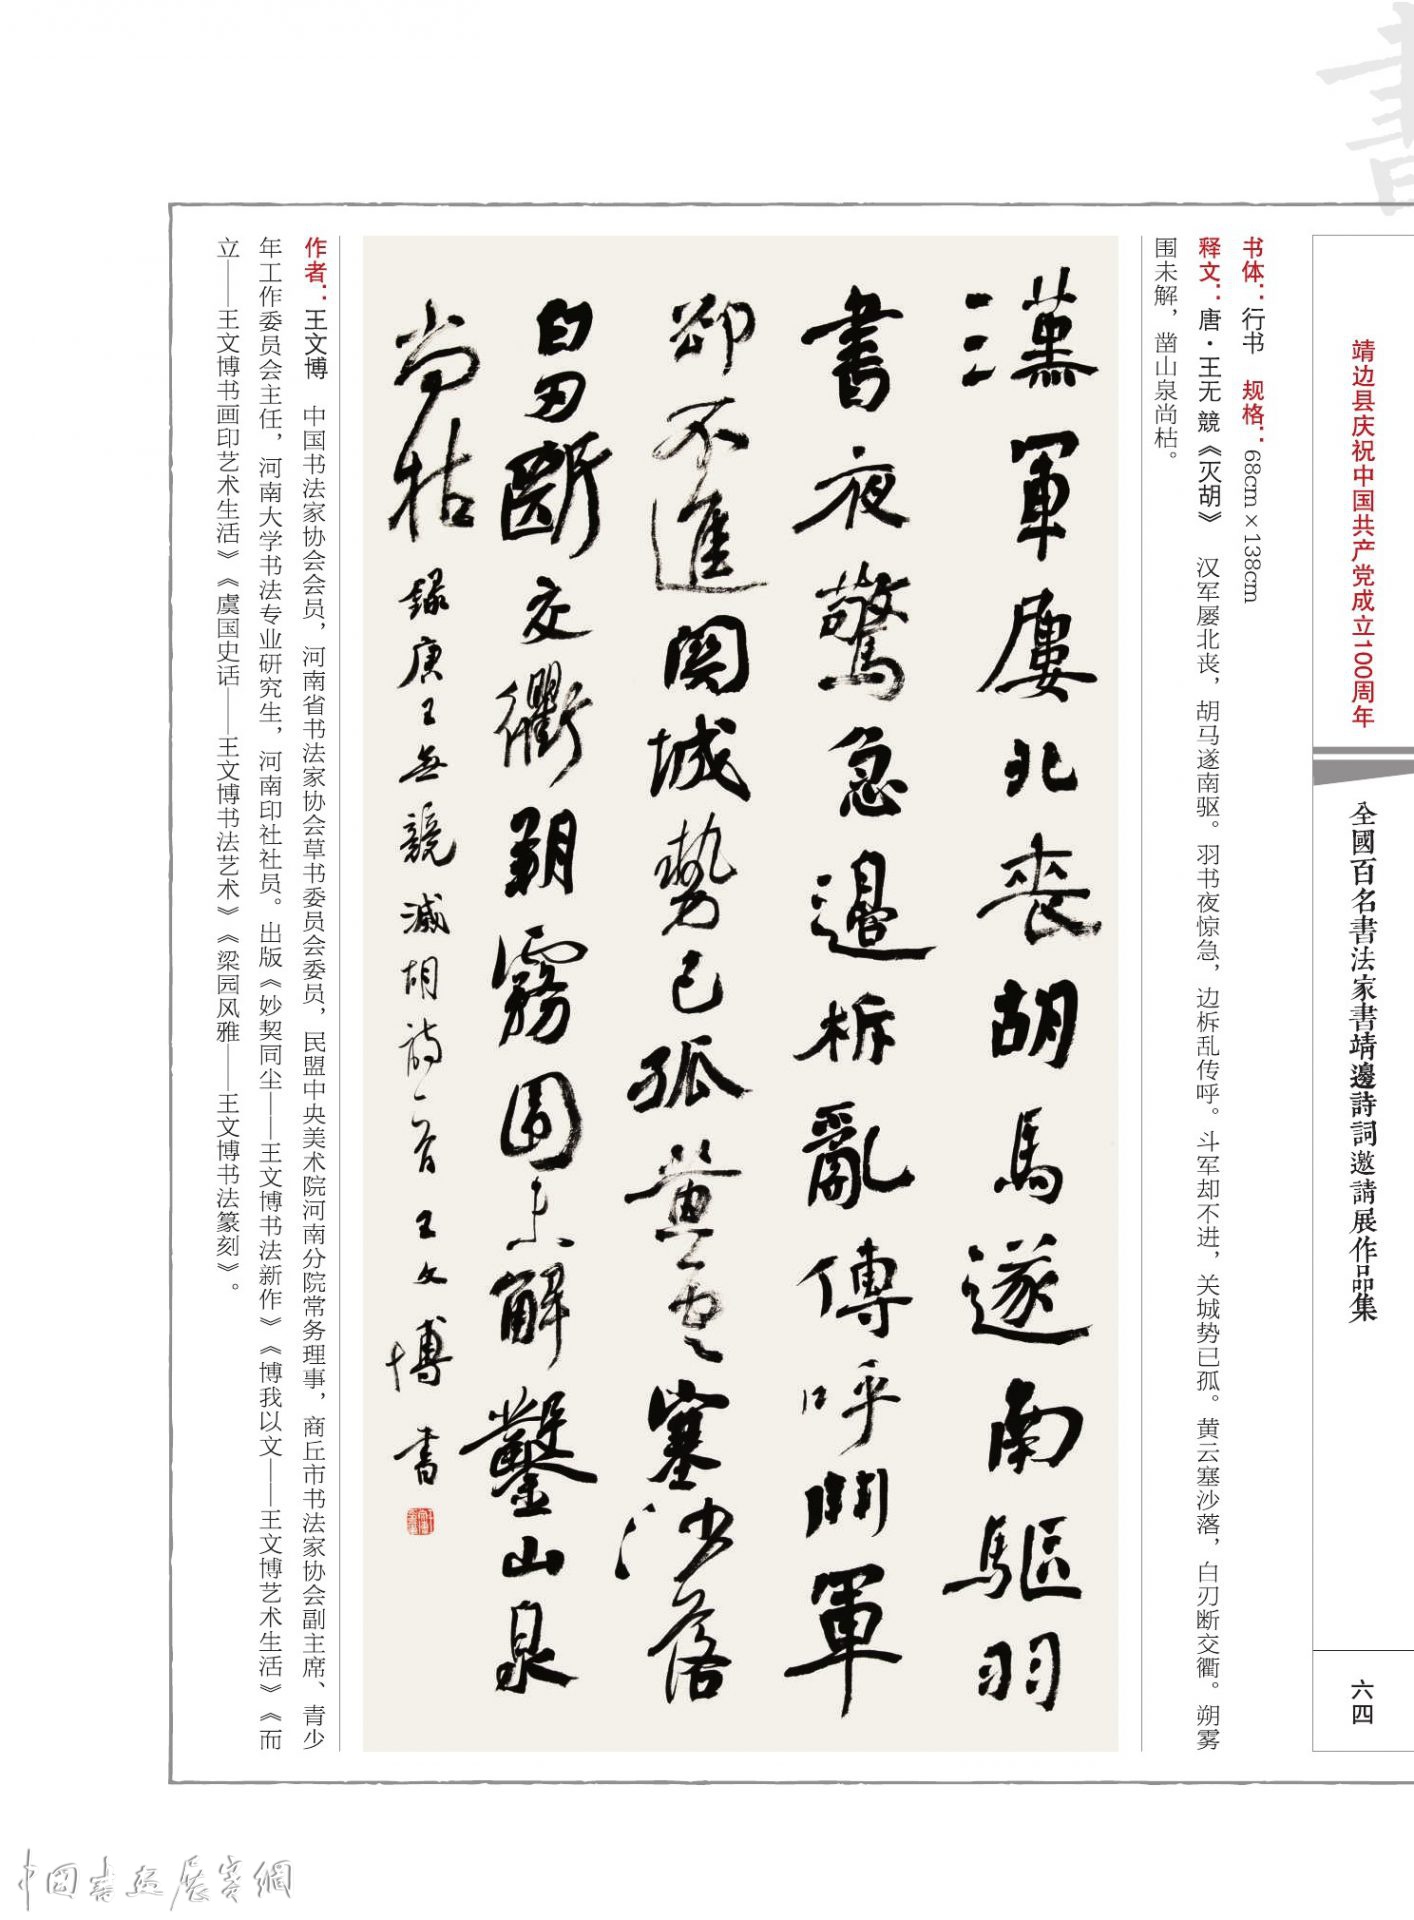 靖边县庆祝中国共产党成立100周年
全國百名書法家書靖邊詩詞邀請展作品集
六四
书体：行书 规格：68cm×138cm
释文：唐·王无競《灭胡》 汉军屡北丧，胡马遂南驱。羽书夜惊急，边柝乱传呼。斗军却不进，关城势已孤。黄云塞沙落，白刃断交衢。朔雾
围未解，凿山泉尚枯。
漢軍屢北喪胡馬遂南驅羽
書夜驚急邊柝亂傳呼鬥軍
卻不進関城勢已孤黃雲塞沙落
白刃斷交衢朔霧圍未解鑿山泉
尚枯 録唐王無競滅胡詩一首王文博書
作者：王文博 中国书法家协会会员，河南省书法家协会草书委员会委员，民盟中央美术院河南分院常务理事，商丘市书法家协会副主席、青少
年工作委员会主任，河南大学书法专业研究生，河南印社社员。出版《妙契同尘——王文博书法新作》《博我以文——王文博艺术生活》《而
立——王文博书画印艺术生活》《虞国史话——王文博书法艺术》《梁园风雅——王文博书法篆刻》。
中國書畫展賽網
書